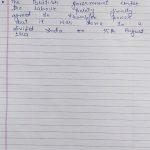 The British government under
the Labour Party finally
agreed to transfer power
but it was done to a
divided India on 15th August
1947